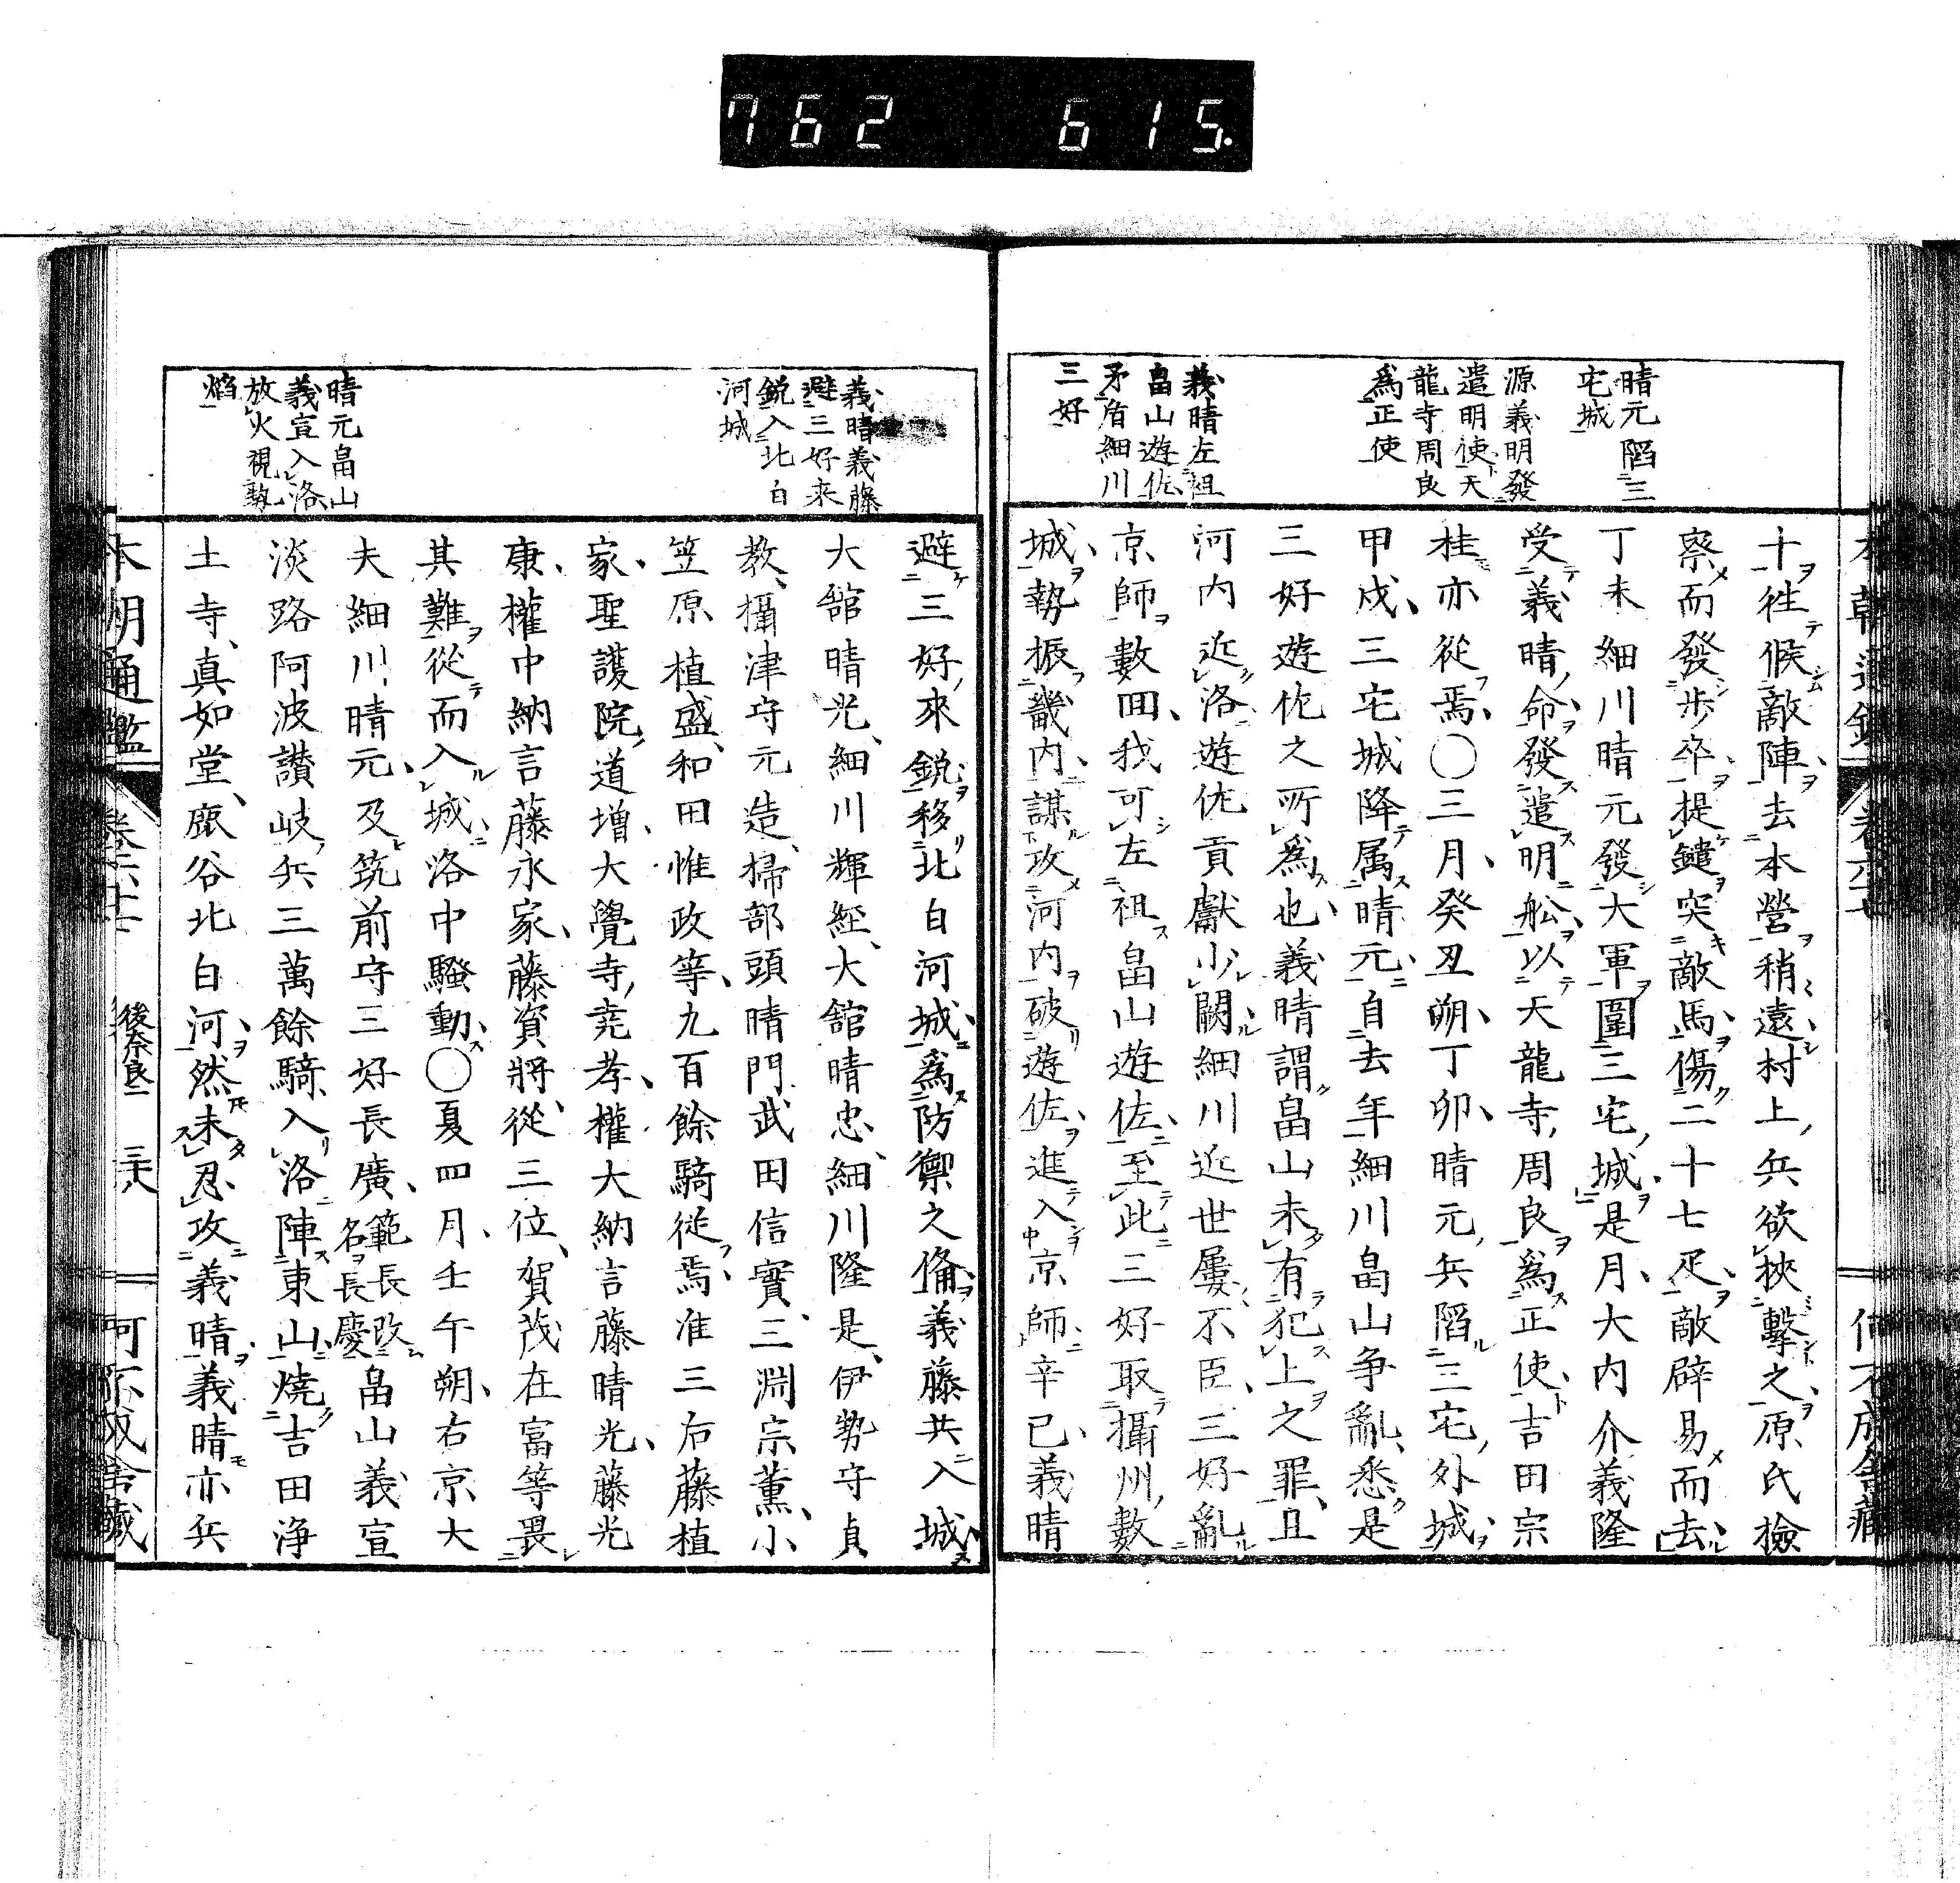 762 615.
晴元陷三
宅城
源義明發
遣明使天
龍寺周良
爲正使
義晴左袒
畠山遊佐
矛盾細川
三好
十往候敵陣去本營稍遠村上兵欲挾擊之原氏撿
察而發步卒提鑓突敵馬傷二十七疋敵辟易而去
丁未細川晴元發大軍圍三宅城是月大內介義隆
受義晴命發遣明舩以天龍寺周良爲正使吉田宗
桂亦從焉〇三月癸丑朔丁卯晴元兵陷三宅外城
甲戌三宅城降属晴元自去年細川畠山争亂悉是
三好遊佐之所爲也義晴謂畠山未有犯上之罪且
河內近洛遊佐貢獻少闕細川近世屢不臣三好亂
京師數回我可左袒畠山遊佐至此三好取攝州數
城勢振畿內謀攻河內破遊佐進入京師辛巳義晴
義晴義藤
避三好來
銳入北白
河城
晴元畠山
義宣入洛
放火視勢
焰
避三好來銳移北白河城爲防禦之備義藤共入城
大舘晴光細川輝經大舘晴忠細川隆是伊勢守貞
教攝津守元造掃部頭晴門武田信實三淵宗薰小
笠原植盛和田惟政等九百餘騎從焉准三后藤植
家聖護院道增大覺寺尭孝權大納言藤晴光藤光
康權中納言藤永家藤資將從三位賀茂在富等畏
其難從而入城洛中騷動〇夏四月壬午朔右京大
夫細川晴元及筑前守三好長廣範長改名長慶畠山義宣
淡路阿波讃岐兵三萬餘騎入洛陣東山燒吉田浄
土寺真如堂鹿谷北白河然未忍攻義晴義晴亦兵
本朝通鑑 後奈良一 三十八